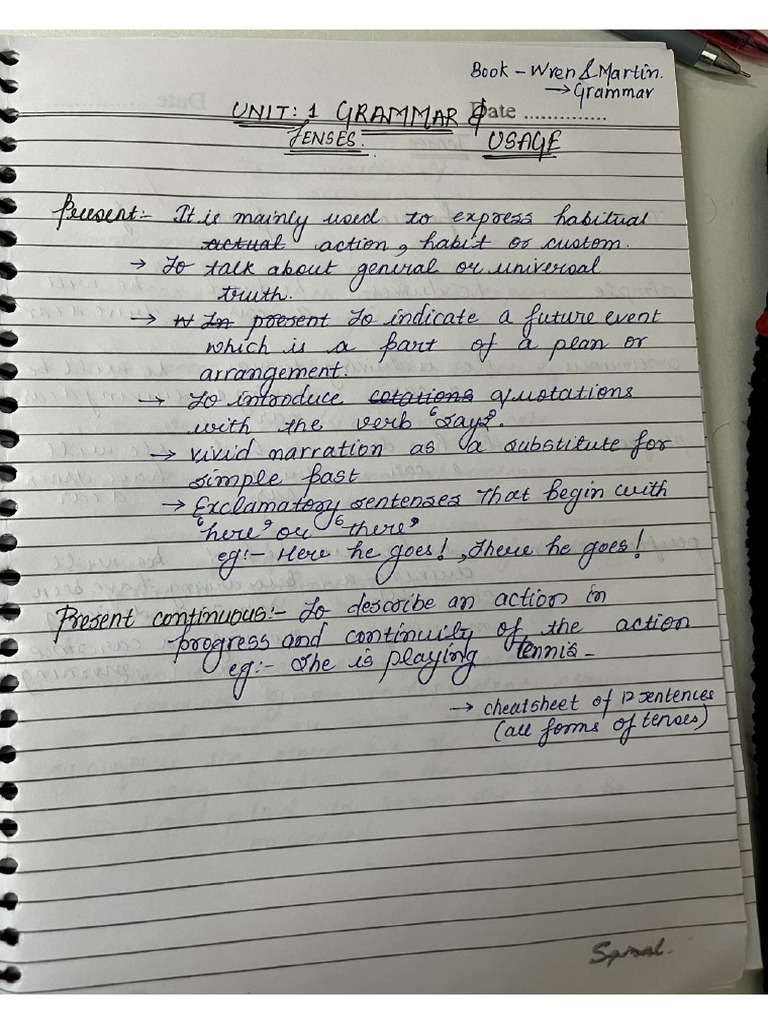 Book - Wren & Martin.
→ Grammar
Date ..............
UNIT: 1 GRAMMAR &
TENSES. USAGE
Present:- It is mainly used to express habitual
actual action, habit or custom.
→ To talk about general or universal
truth.
→ In present To indicate a future event
which is a part of a plan or
arrangement.
→ To introduce cotations quotations
with the verb 'say'.
→ vivid narration as a substitute for
simple past
→ Exclamatory sentenses that begin with
'here' or 'there'
eg:- Here he goes!, There he goes!
Present continuous:- To describe an action in
progress and continuity of the action
eg:- She is playing tennis-
→ cheatsheet of 12 sentences
(all forms of tenses)